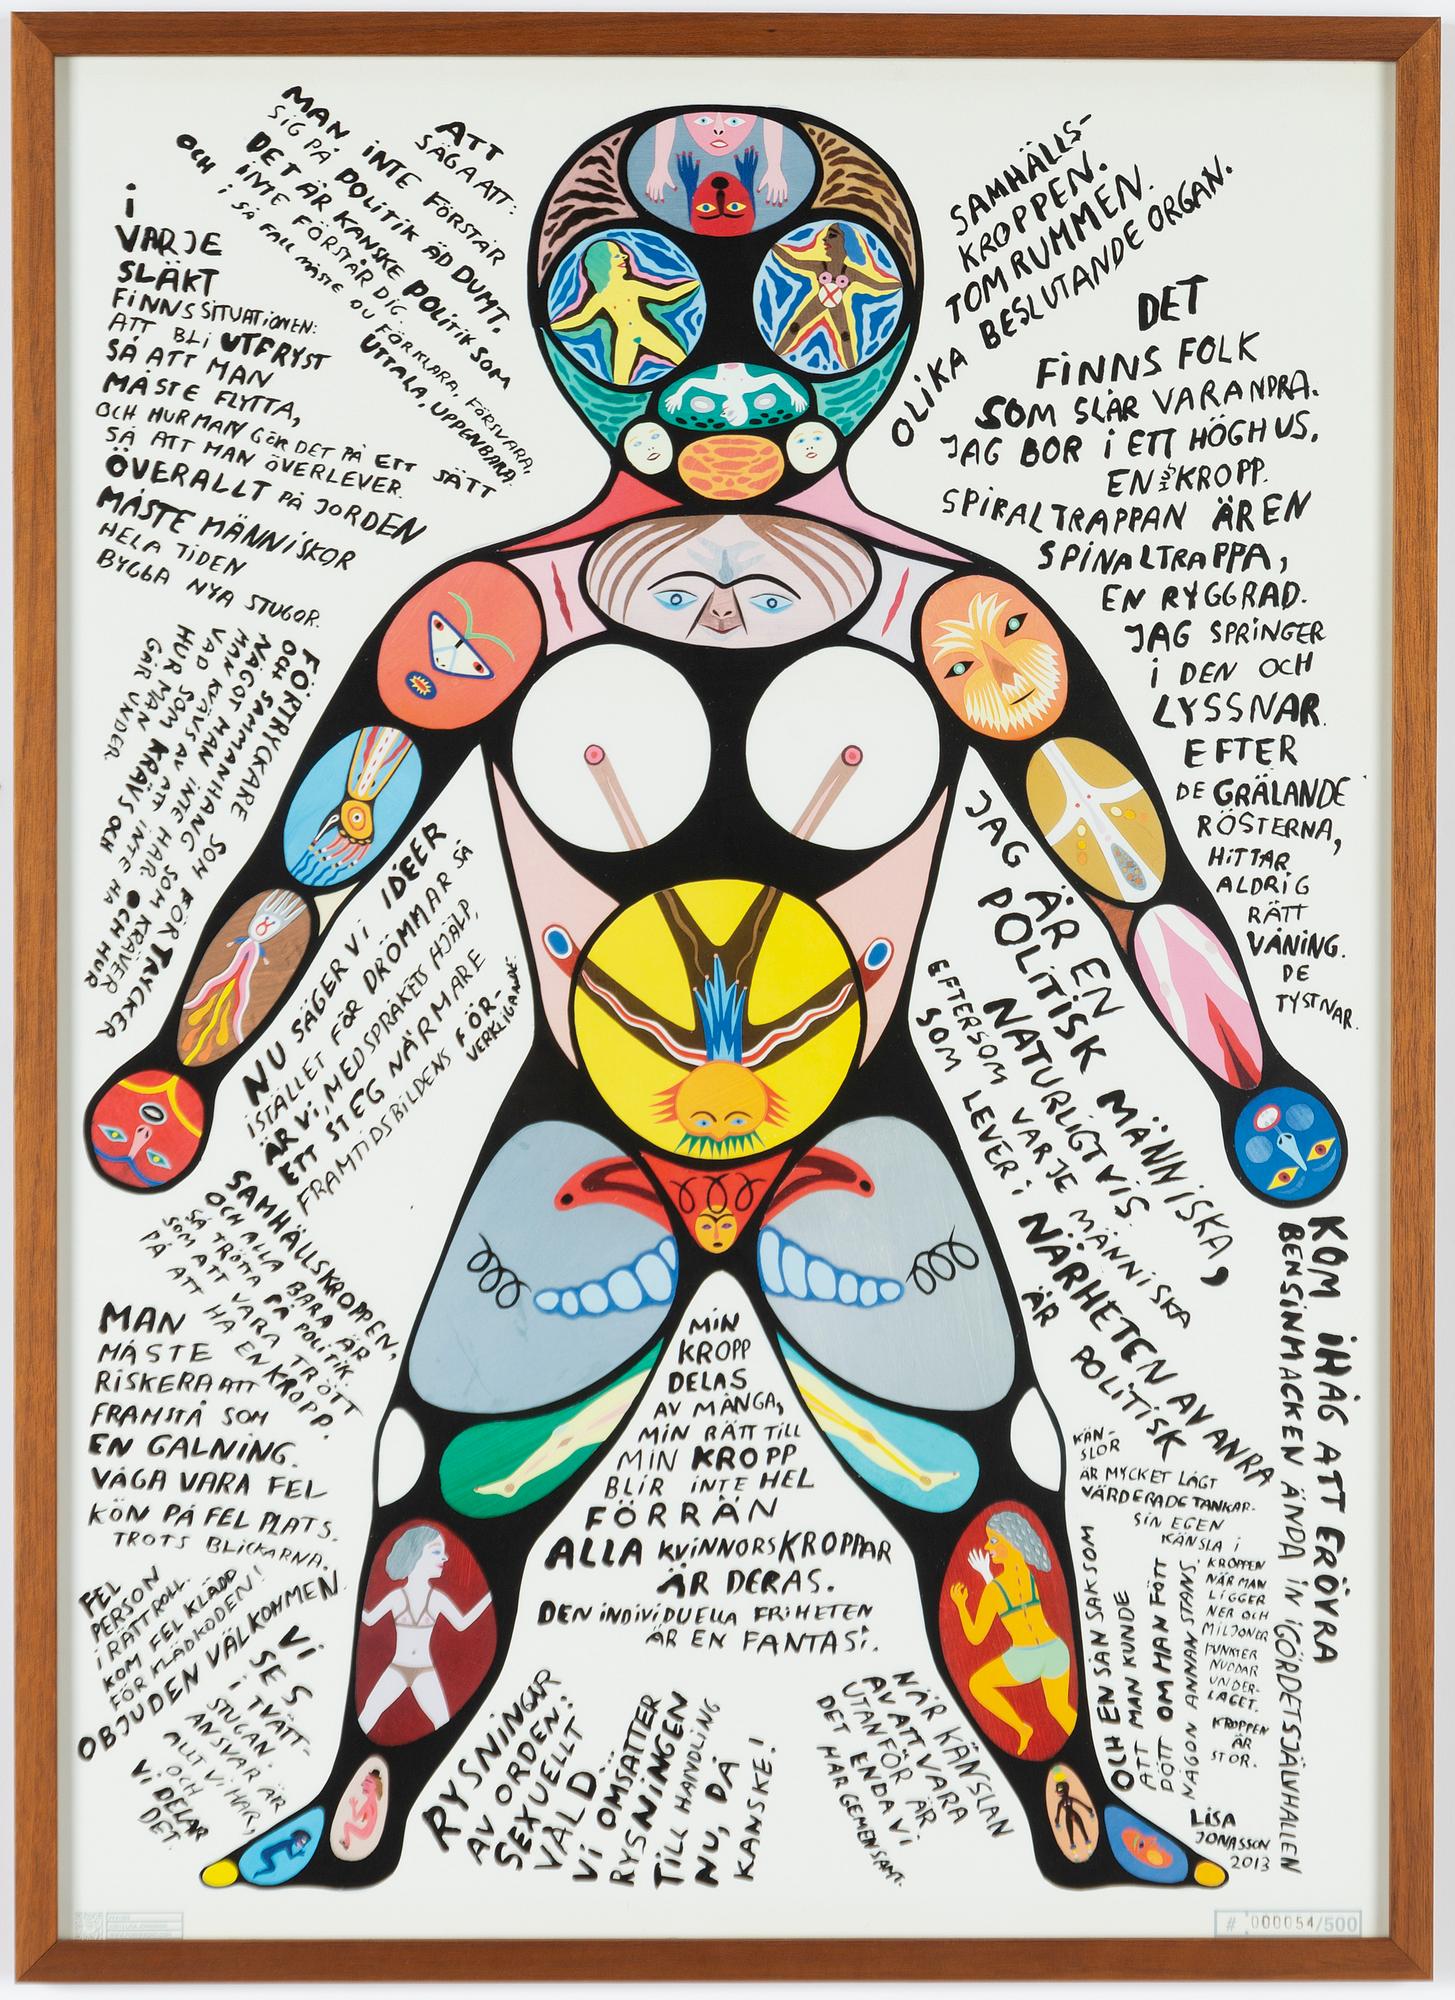 ATT
SÄGA ATT:
MAN INTE FÖRSTÅR
SIG PÅ POLITIK ÄR DUMT.
DET ÄR KANSKE POLITIK SOM
INTE FÖRSTÅR DIG.
OCH I SÅ FALL MÅSTE DU FÖRKLARA, FÖRSVARA,
UTTALA, UPPENBARA.
I
VARJE
SLÄKT
FINNS SITUATIONEN:
ATT BLI UTFRYST
SÅ ATT MAN
MÅSTE FLYTTA,
OCH HUR MAN GÖR DET PÅ ETT SÄTT
SÅ ATT MAN ÖVERLEVER.
ÖVERALLT PÅ JORDEN
MÅSTE MÄNNISKOR
HELA TIDEN
BYGGA NYA STUGOR.
FÖRTRYCKARE SOM FÖRTRYCKER
OCH SAMMANHANG SOM KRÄVER
NÅGOT MAN INTE HAR OCH HUR
MAN KVÄVS AV ATT INTE HA
VAD SOM KRÄVS OCH
HUR MAN
GÅR UNDER.
NU SÄGER VI IDÉER
ISTÄLLET FÖR DRÖMMAR SÅ
ÄR VI, MED SPRÅKETS HJÄLP,
ETT STEG NÄRMARE
FRAMTIDSBILDENS FÖR-
VERKLIGANDE.
SAMHÄLLSKROPPEN,
OCH ALLA BARA ÄR
SÅ TRÖTTA PÅ POLITIK
SOM ATT VARA TRÖTT
PÅ ATT HA EN KROPP.
MAN
MÅSTE
RISKERA ATT
FRAMSTÅ SOM
EN GALNING.
VÅGA VARA FEL
KÖN PÅ FEL PLATS.
TROTS BLICKARNA.
FEL
PERSON
I RÄTT ROLL.
KOM FEL KLÄDD
FÖR KLÄDKODEN!
OBJUDEN VÄLKOMMEN.
VI
SES
I TVÄTT-
STUGAN.
ANSVAR ÄR
ALLT VI HAR,
OCH
VI DELAR
DET
SAMHÄLLS-
KROPPEN.
TOMRUMMEN.
OLIKA BESLUTANDE ORGAN.
DET
FINNS FOLK
SOM SLÅR VARANDRA.
JAG BOR I ETT HÖGHUS.
EN HUSKROPP.
SPIRALTRAPPAN ÄR EN
SPINALTRAPPA,
EN RYGGRAD.
JAG SPRINGER
I DEN OCH
LYSSNAR
EFTER
DE GRÄLANDE
RÖSTERNA,
HITTAR
ALDRIG
RÄTT
VÅNING.
DE
TYSTNAR.
JAG ÄR EN
POLITISK MÄNNISKA,
NATURLIGTVIS.
EFTERSOM VARJE MÄNNISKA
SOM LEVER I NÄRHETEN AV ANRA
ÄR POLITISK
KOM IHÅG ATT ERÖVRA
BENSINMACKEN ÄNDA IN I GÖRDETSJÄLVHALLEN
KÄN-
SLOR
ÄR MYCKET LÅGT
VÄRDERADE TANKAR.
SIN EGEN
KÄNSLA I
KROPPEN
NÄR MAN
LIGGER
NER OCH
MILJONER
PUNKTER
NUDDAR
UNDER-
LAGET.
KROPPEN
ÄR
STOR.
OCH EN SÅN SAK SOM
ATT MAN KUNDE
DÖTT OM MAN FÖTTS
NÅGON ANNAN STANS.
MIN
KROPP
DELAS
AV MÅNGA,
MIN RÄTT TILL
MIN KROPP
BLIR INTE HEL
FÖRRÄN
ALLA KVINNORS KROPPAR
ÄR DERAS.
DEN INDIVIDUELLA FRIHETEN
ÄR EN FANTASI.
RYSNINGAR
AV ORDEN:
SEXUELLT
VÅLD
VI OMSÄTTER
RYSNINGEN
TILL HANDLING
NU, DÅ
KANSKE!
NÄR KÄNSLAN
AV ATT VARA
UTANFÖR ÄR
DET ENDA VI
HAR GEMENSAMT.
LISA
JONASSON
2013
# 000054/500